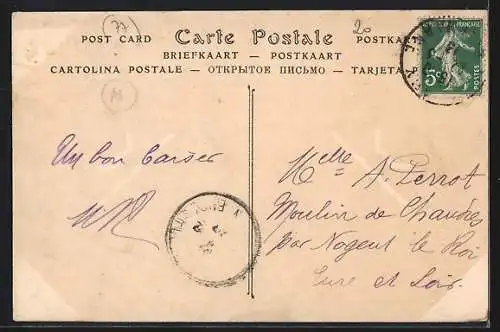 POST CARD Carte Postale POSTKA
BRIEFKAART — POSTKAART
CARTOLINA POSTALE — ОТКРЫТОЕ ПИСЬМО — TARJETA
20
RÉPUBLIQUE FRANÇAISE
5c
POSTES
Un bon baiser
Melle A. Perrot
Moulin de
par Nogent le Roi
Eure et Loir